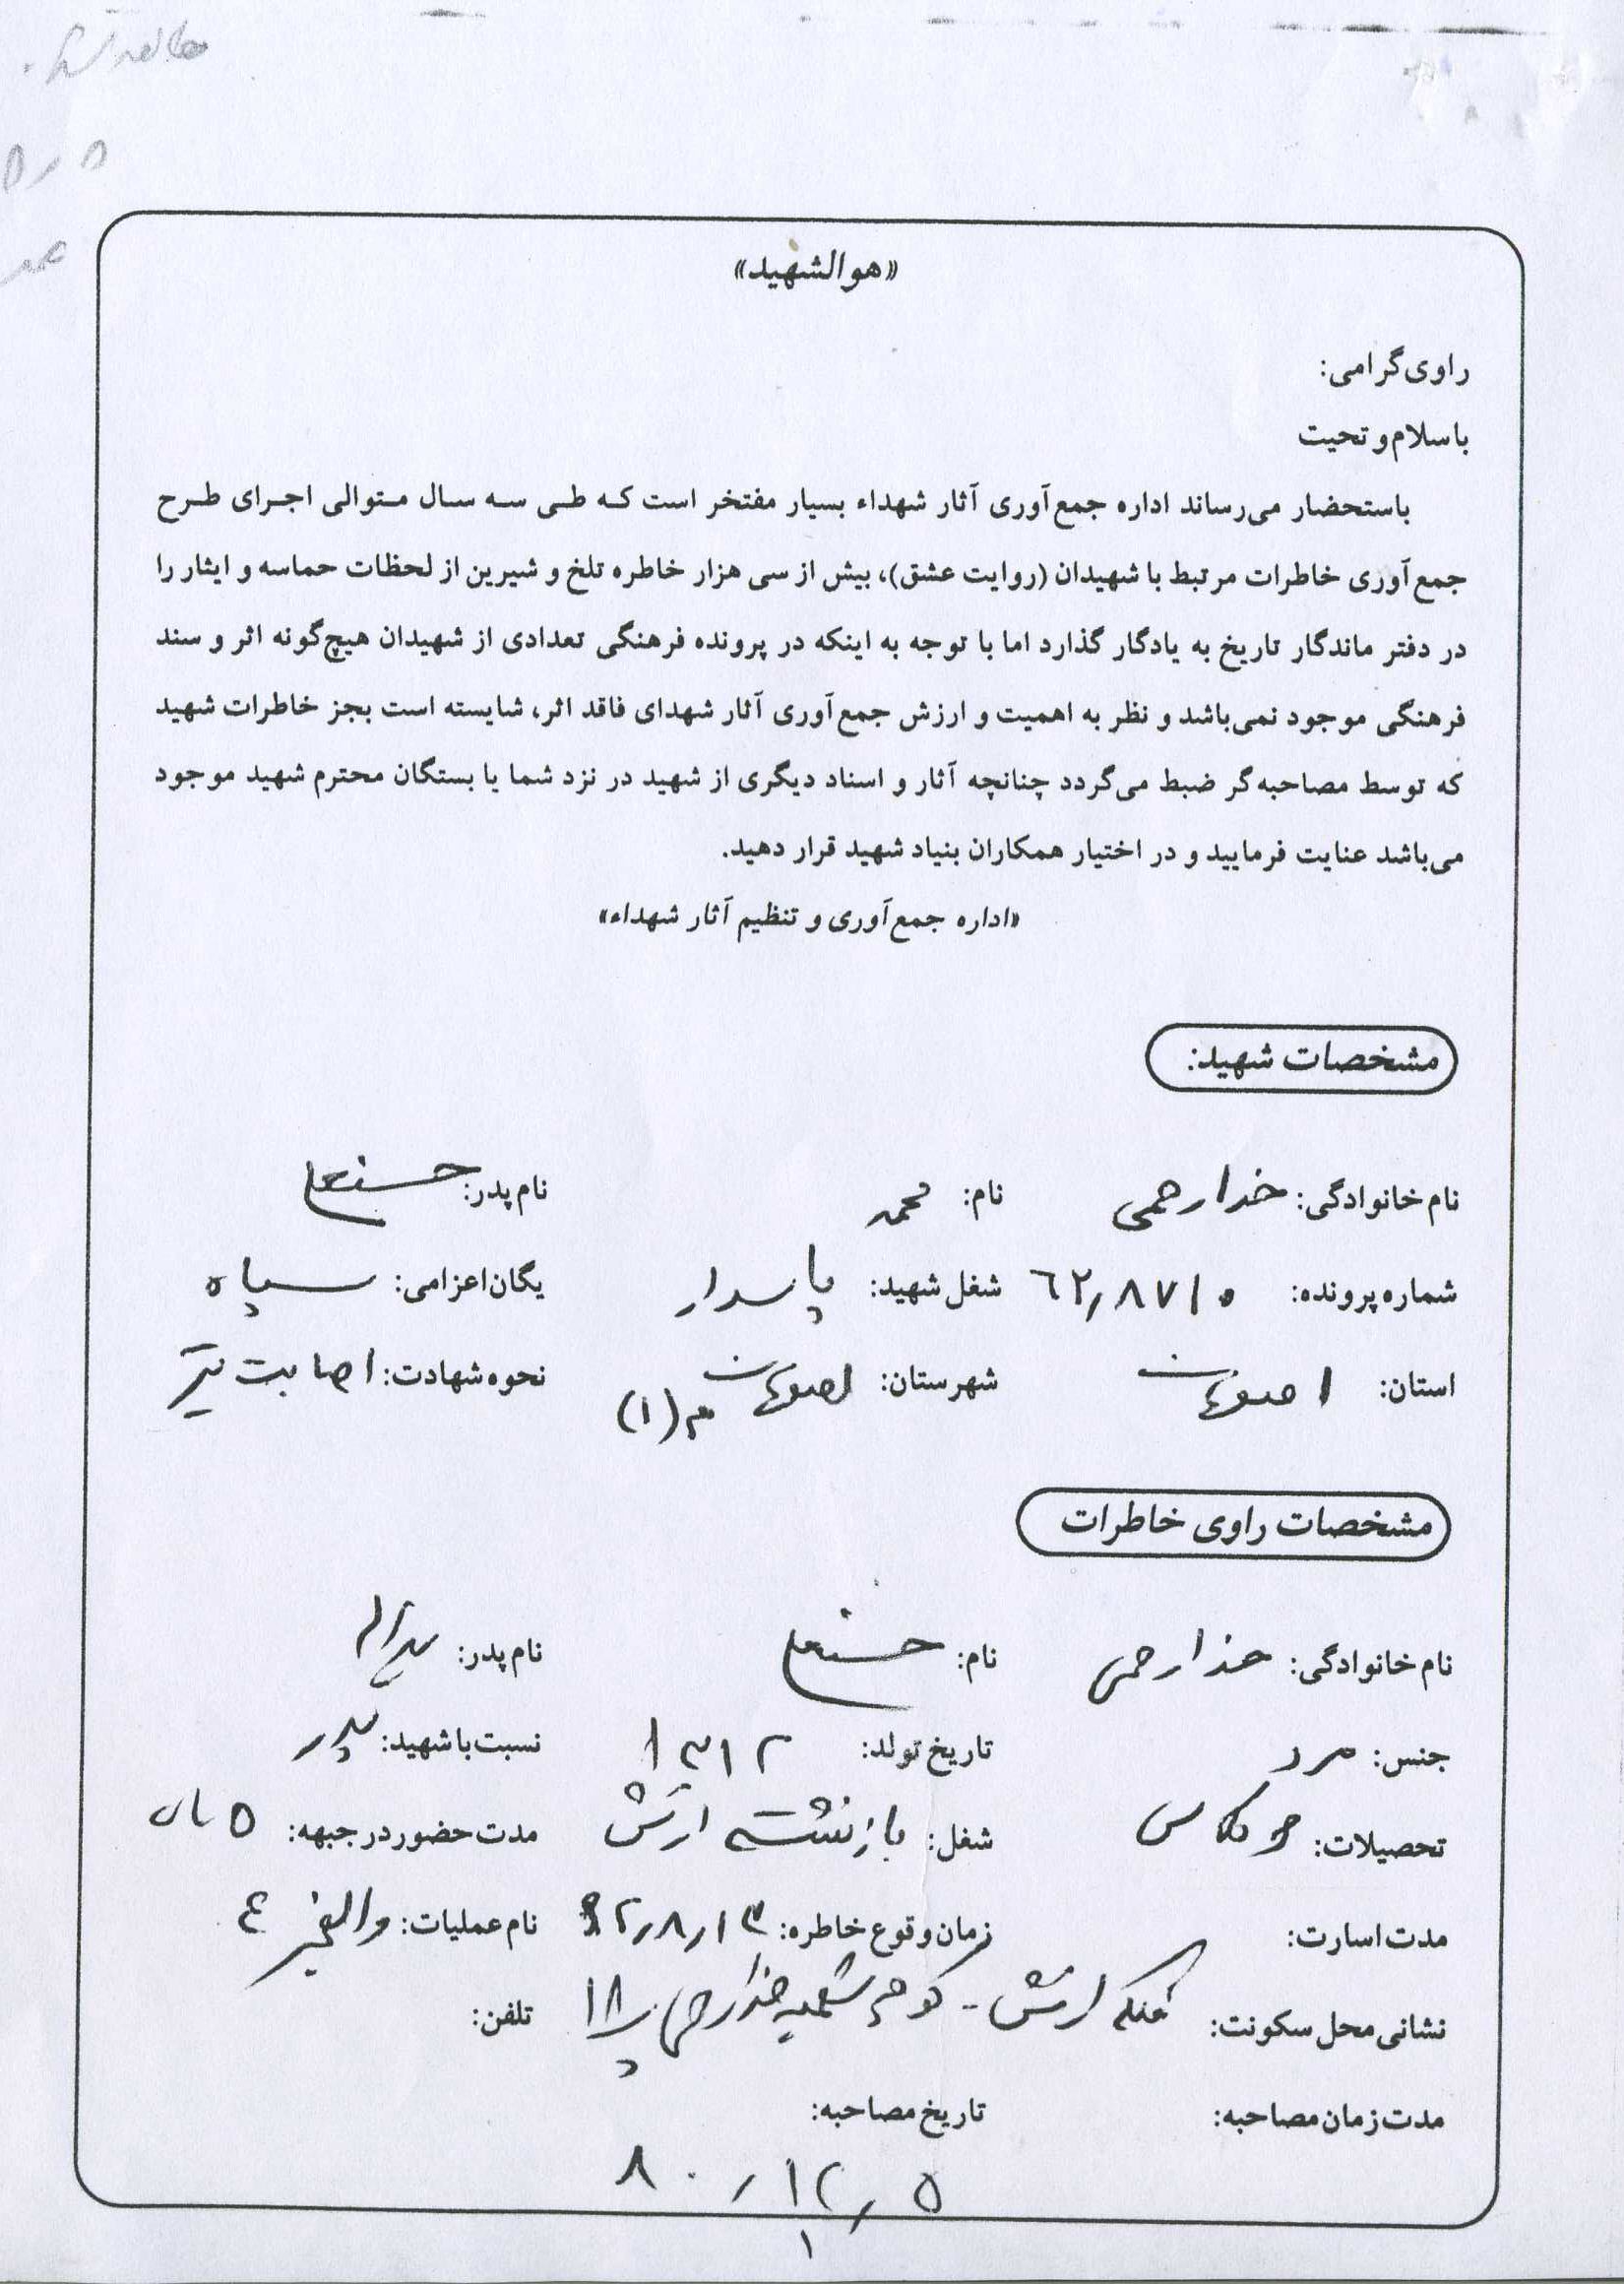 مطالعه شد.
۵ / ۵
«هوالشهید»
راوی گرامی:
با سلام و تحیت
باستحضار می‌رساند اداره جمع‌آوری آثار شهداء بسیار مفتخر است که طی سه سال متوالی اجرای طرح
جمع‌آوری خاطرات مرتبط با شهیدان (روایت عشق)، بیش از سی هزار خاطره تلخ و شیرین از لحظات حماسه و ایثار را
در دفتر ماندگار تاریخ به یادگار گذارد اما با توجه به اینکه در پرونده فرهنگی تعدادی از شهیدان هیچ‌گونه اثر و سند
فرهنگی موجود نمی‌باشد و نظر به اهمیت و ارزش جمع‌آوری آثار شهدای فاقد اثر، شایسته است بجز خاطرات شهید
که توسط مصاحبه‌گر ضبط می‌گردد چنانچه آثار و اسناد دیگری از شهید در نزد شما یا بستگان محترم شهید موجود
می‌باشد عنایت فرمایید و در اختیار همکاران بنیاد شهید قرار دهید.
«اداره جمع‌آوری و تنظیم آثار شهداء»
مشخصات شهید:
نام خانوادگی: خدارحمی نام: محمد نام پدر: حسنعلی
شماره پرونده: ۶۲/۸۷۱۰ شغل شهید: پاسدار یگان اعزامی: سپاه
استان: اصفهان شهرستان: اصفهان م(۱) نحوه شهادت: اصابت تیر
مشخصات راوی خاطرات
نام خانوادگی: خدارحمی نام: حسنعلی نام پدر: یداله
جنس: مرد تاریخ تولد: ۱۳۱۲ نسبت با شهید: پدر
تحصیلات: شغل: بازنشسته ارتش مدت حضور در جبهه: ۵ ماه
مدت اسارت: زمان وقوع خاطره: ۶۲/۸/۱۳ نام عملیات: والفجر ۴
نشانی محل سکونت: ارتش - کوچه شهید خدارحمی پ ۱۸ تلفن:
مدت زمان مصاحبه: تاریخ مصاحبه:
۸۰/۱۲/۵
۱